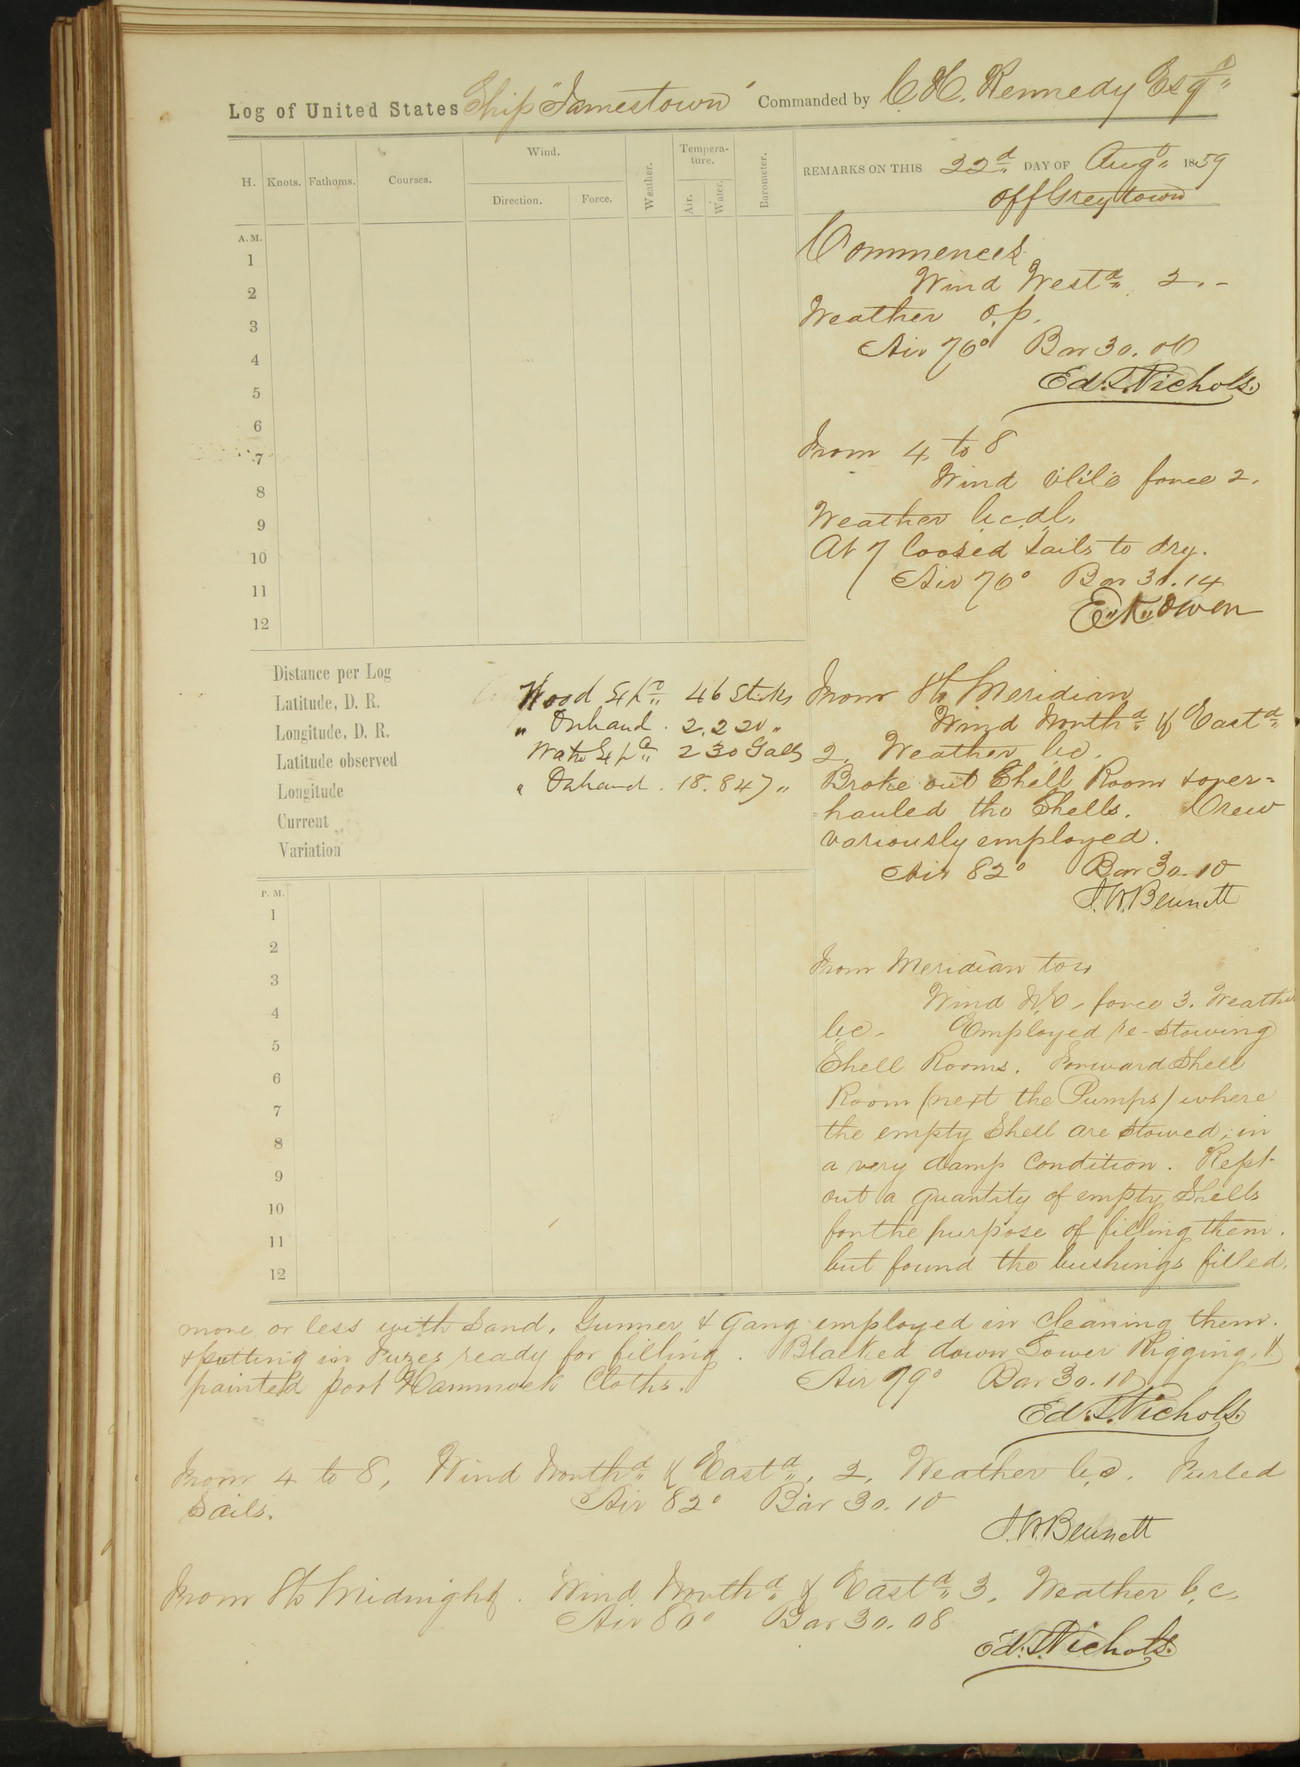 Log of United States Ship "Jamestown" Commanded by C. H. Kennedy Esqr
H. Knots. Fathoms. Courses. Wind. Direction. Force. Weather. Tempera-ture. Air. Water. Barometer.
REMARKS ON THIS 22d DAY OF Augt 1859
off Greytown
A. M.
1
2
3
4
5
6
7
8
9
10
11
12
Commences
Wind Westd 2.-
Weather o.p.
Air 76° Bar 30.06
Ed. T. Nichols.
From 4 to 8
Wind force 2.
Weather b.c.d.
At 7 loosed sails to dry.
Air 76° Bar 30.14
E. K. Owen
Distance per Log
Latitude, D. R.
Longitude, D. R.
Latitude observed
Longitude
Current
Variation
Wood Exp. 46 Sticks
" Onhand. 2,220 "
Water Exp. 230 Galls
" Onhand. 18.847 "
From 8 to Meridian
Wind Northd & Eastd
2. Weather b.c.
Broke out Shell Room & over=
hauled the Shells. Crew
variously employed.
Air 82° Bar 30.10
J. W. Bennett
P. M.
1
2
3
4
5
6
7
8
9
10
11
12
From Meridian to 4
Wind N.E. force 3. Weather
b.c. Employed re-stowing
Shell Rooms. Forward Shell
Room (next the Pumps) where
the empty Shell are stowed, in
a very damp condition. Kept
out a quantity of empty Shells
for the purpose of filling them.
but found the bushings filled
more or less with Sand. Gunner & Gang employed in cleaning them.
& putting in Fuzes ready for filling. Blacked down Lower Rigging, &
painted port Hammock Cloths. Air 79° Bar 30.10
Ed. T. Nichols.
From 4 to 8, Wind Northd & Eastd, 2, Weather b.c. Furled
Sails. Air 82° Bar 30.10
J. W. Bennett
From 8 to Midnight. Wind Northd & Eastd 3. Weather b.c.
Air 80° Bar 30.08
Ed. T. Nichols.